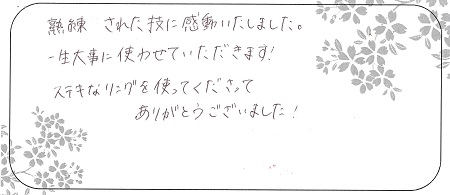 熟練 された技に感動いたしました。
一生大事に使わせていただきます!
ステキなリングを使ってくださって
ありがとうございました!